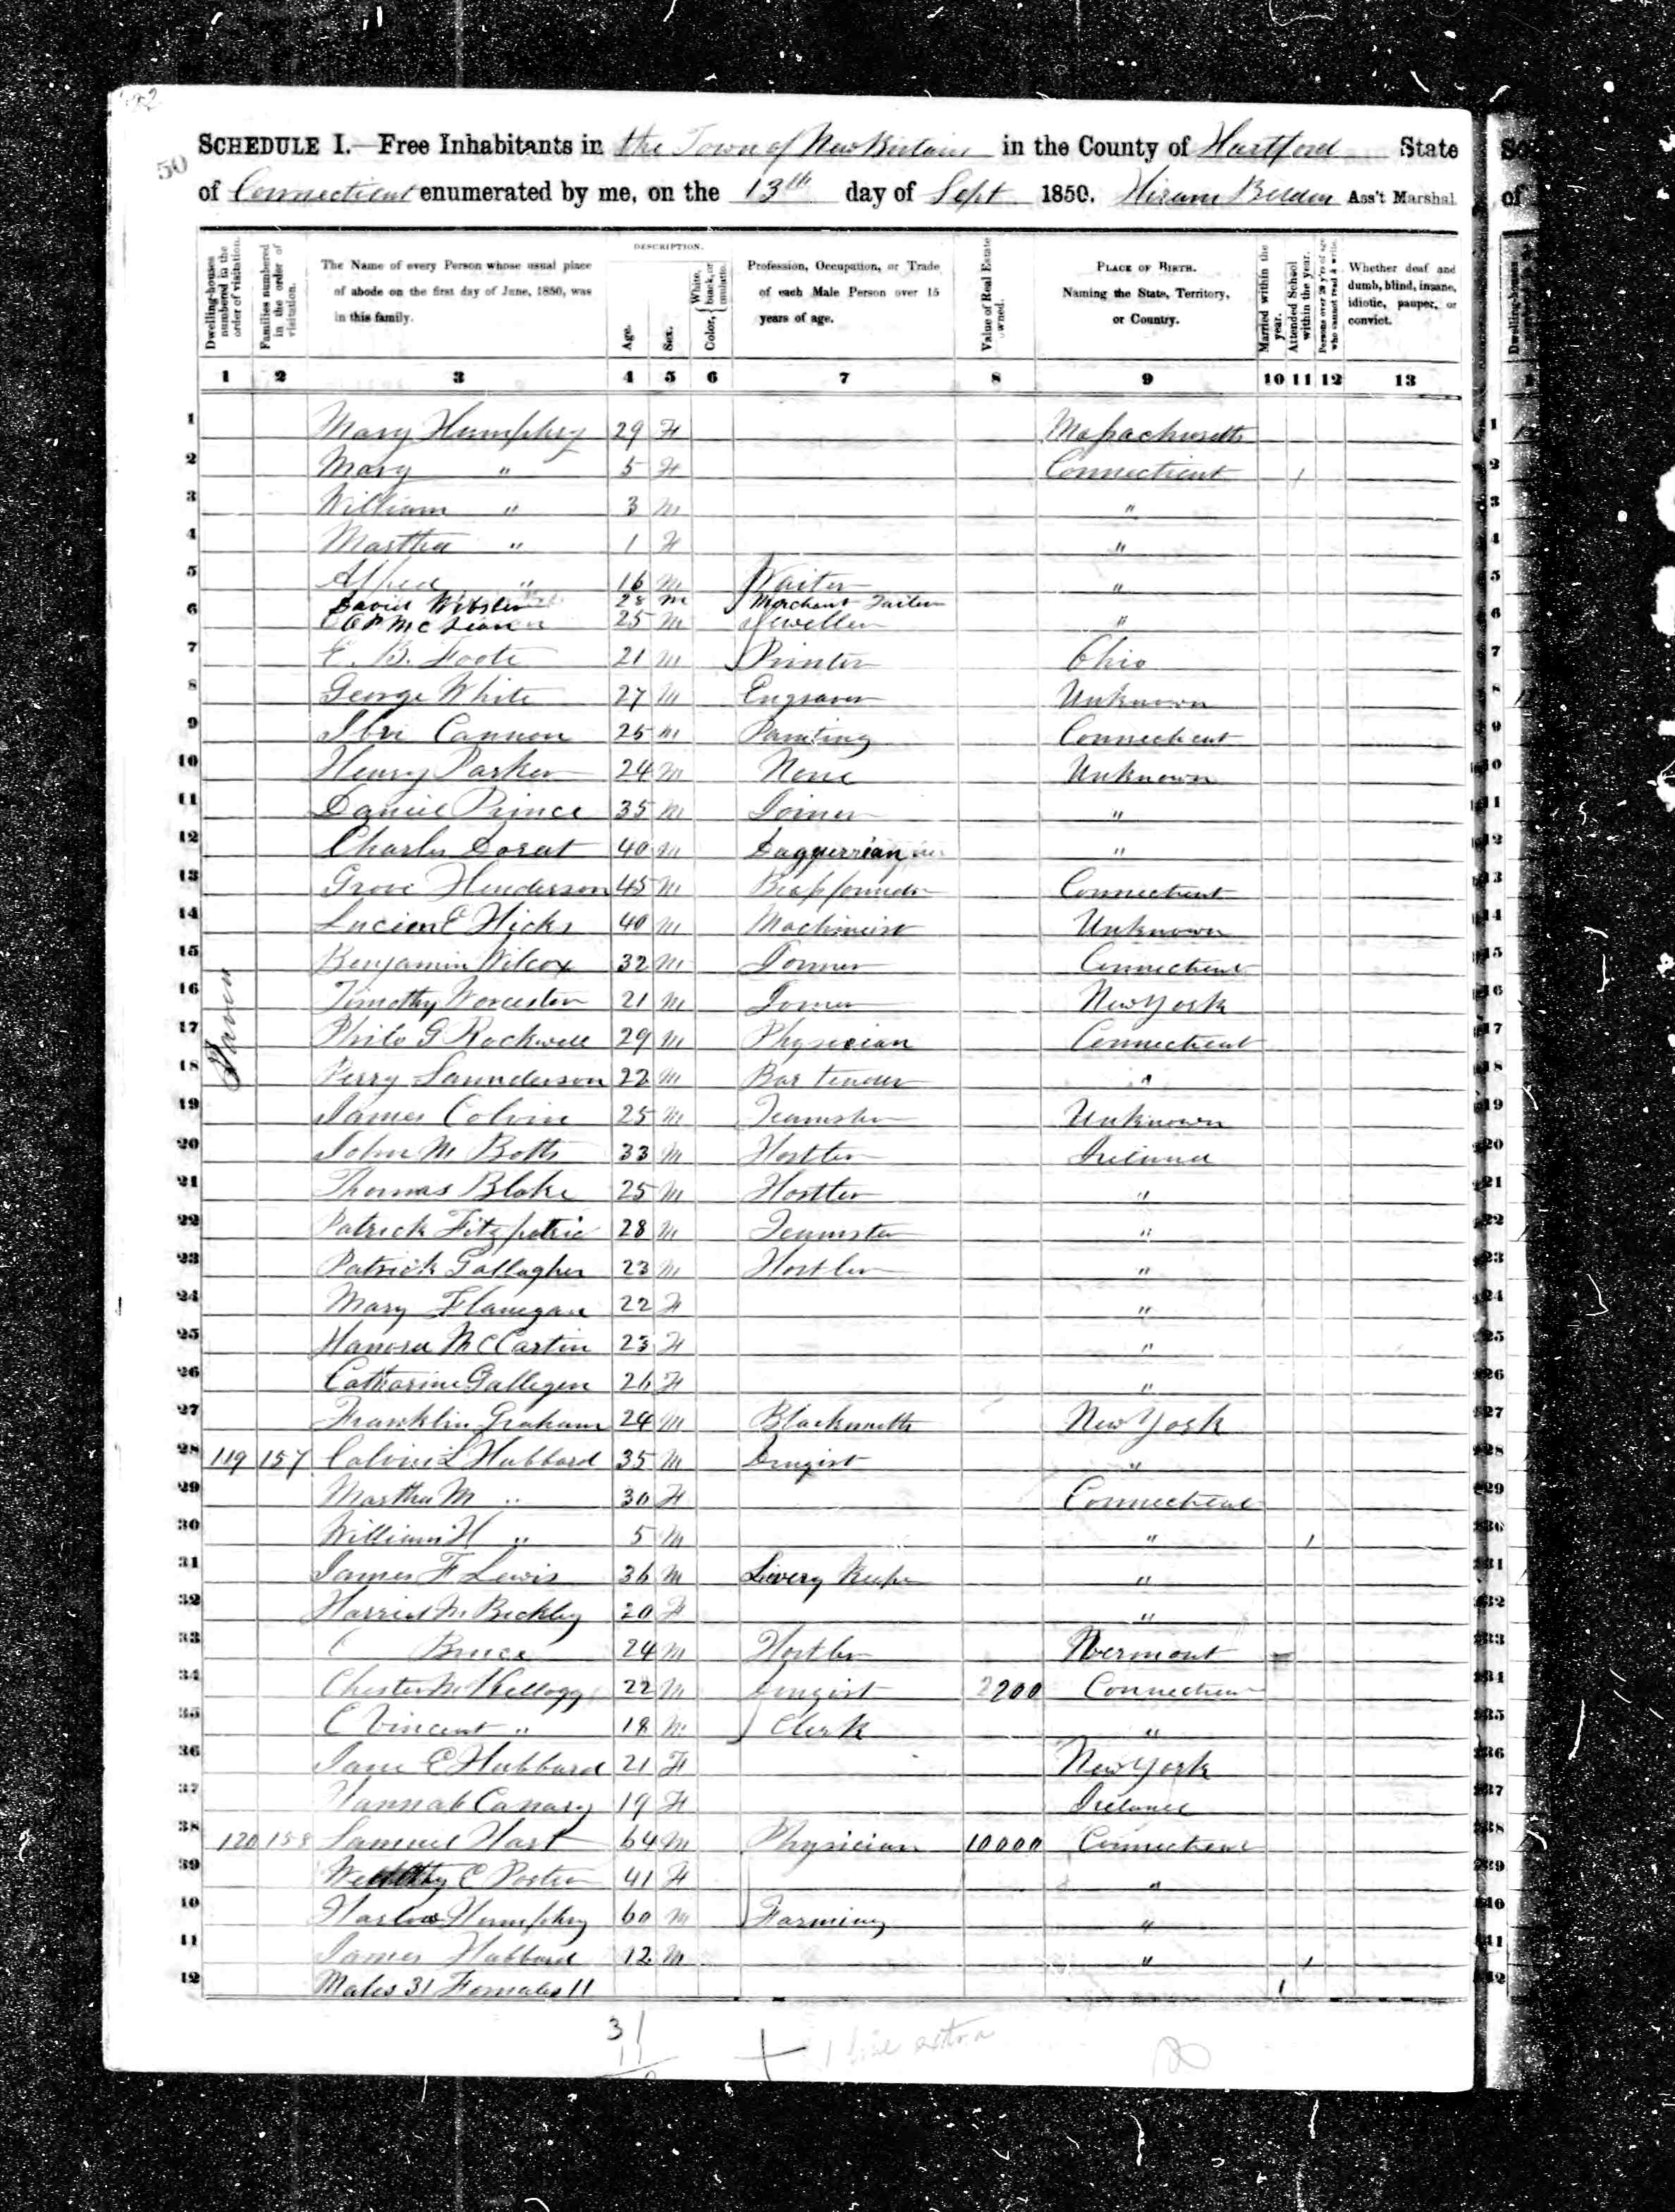 482
50
SCHEDULE I.—Free Inhabitants in the Town of New Britain in the County of Hartford State
of Connecticut enumerated by me, on the 13th day of Sept 1850. Hiram Belden Ass't Marshal
Dwelling-houses numbered in the order of visitation.
Families numbered in the order of visitation.
The Name of every Person whose usual place of abode on the first day of June, 1850, was in this family.
DESCRIPTION.
Age.
Sex.
Color, { White, black, or mulatto.
Profession, Occupation, or Trade of each Male Person over 15 years of age.
Value of Real Estate owned.
PLACE OF BIRTH. Naming the State, Territory, or Country.
Married within the year.
Attended School within the year.
Persons over 20 y'rs of age who cannot read & write.
Whether deaf and dumb, blind, insane, idiotic, pauper, or convict.
1 2 3 4 5 6 7 8 9 10 11 12 13
1 Mary Humphrey 29 F Massachusetts
2 Mary " 5 F Connecticut 1
3 William " 3 M "
4 Martha " 1 F "
5 Alfred " 16 M Waiter "
David Webster 28 M Merchant Tailor
6 McLean 25 M Jeweller "
7 E. B. Foote 21 M Printer Ohio
8 George White 27 M Engraver Unknown
9 Cannon 25 M Painting Connecticut
10 Henry Parker 24 M None Unknown
11 Daniel Prince 35 M Joiner "
12 Charles Dorat 40 M Daguerrian "
13 Grove Henderson 45 M Brass founder Connecticut
14 Lucien E Hicks 40 M Machinist Unknown
15 Benjamin Wilcox 32 M Joiner Connecticut
16 Timothy Worcester 21 M Joiner New York
17 Philo G Rockwell 29 M Physician Connecticut
18 Perry Saunderson 22 M Bar tender "
19 James Colvin 25 M Teamster Unknown
20 John M Botts 33 M Hostler Ireland
21 Thomas Blake 25 M Hostler "
22 Patrick Fitzpatric 28 M Teamster "
23 Patrick Gallagher 23 M Hostler "
24 Mary Flanegan 22 F "
25 Hanora McCartin 23 F "
26 Catharine Gallegen 26 F "
27 Franklin Graham 24 M Blacksmith New York
28 119 157 Calvin L Hubbard 35 M Drugist "
29 Martha M " 30 F Connecticut
30 William H " 5 M " 1
31 James F Lewis 36 M Livery Keeper "
32 Harriet M Beckley 20 F "
33 Bruce 24 M Hostler Vermont
34 Chester M Kellogg 22 M Drugist 2200 Connecticut
35 C Vincent " 18 M Clerk "
36 Jane E Hubbard 21 F New York
37 Hannah Canary 19 F Ireland
38 120 158 Samuel Hart 64 M Physician 10000 Connecticut
39 C Porter 41 F "
40 Harlow Humphrey 60 M Farming "
41 James Hubbard 12 M " 1
42 Males 31 Females 11 1
31
11
+ 1 line extra